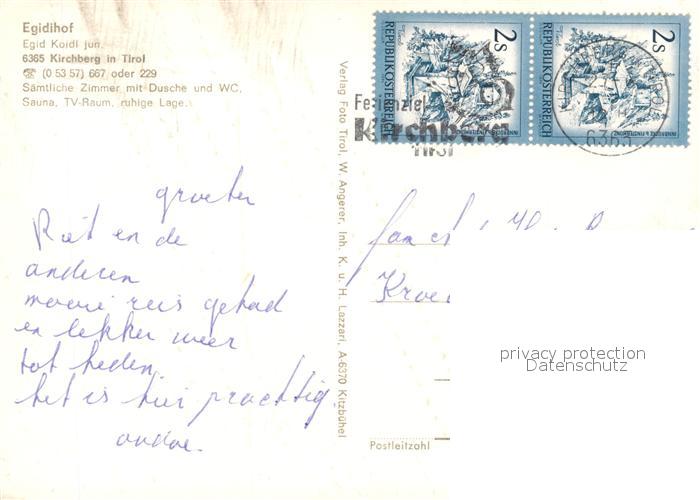 Egidihof
Egid Koidl jun.
6365 Kirchberg in Tirol
☎ (0 53 57) 667 oder 229
Sämtliche Zimmer mit Dusche und WC,
Sauna, TV-Raum, ruhige Lage.
groeten
Riet en de
anderen
mooie reis gehad
en lekker weer
tot heden.
het is hier prachtig.
Verlag Foto Tirol, W. Angerer, Inh. K. u. H. Lazzari, A-6370 Kitzbühel
2s
REPUBLIK ÖSTERREICH
2s
REPUBLIK ÖSTERREICH
Ferienziel
Kirchberg
TIROL
6365
privacy protection
Datenschutz
Postleitzahl